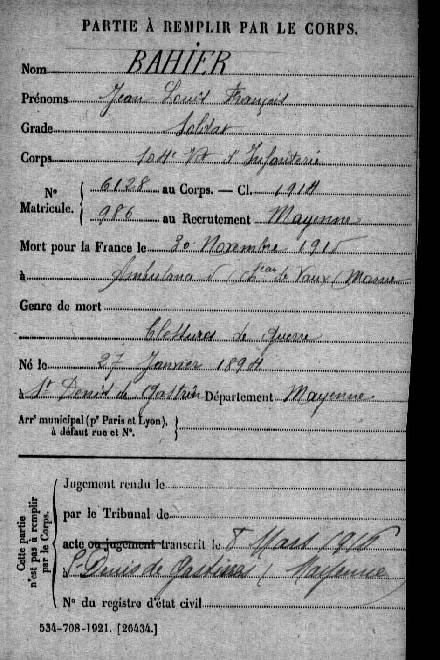 PARTIE À REMPLIR PAR LE CORPS.
Nom BAHIER
Prénoms Jean Louis François
Grade Soldat
Corps 104e Rt d'Infanterie
N° Matricule. 6128 au Corps. — Cl. 1914
986 au Recrutement Mayenne
Mort pour la France le 20 Novembre 1915
à Ambulance de Vaux (Marne
Genre de mort
blessures de guerre
Né le 27 Janvier 1894
à St Denis de Gastines Département Mayenne
Arr' municipal (pr Paris et Lyon),
à défaut rue et N°.
Cette partie n'est pas à remplir par le Corps.
Jugement rendu le
par le Tribunal de
acte ou jugement transcrit le 8 Mars 1916
St Denis de Gastines (Mayenne)
N° du registre d'état civil
534-708-1921. [26434.]